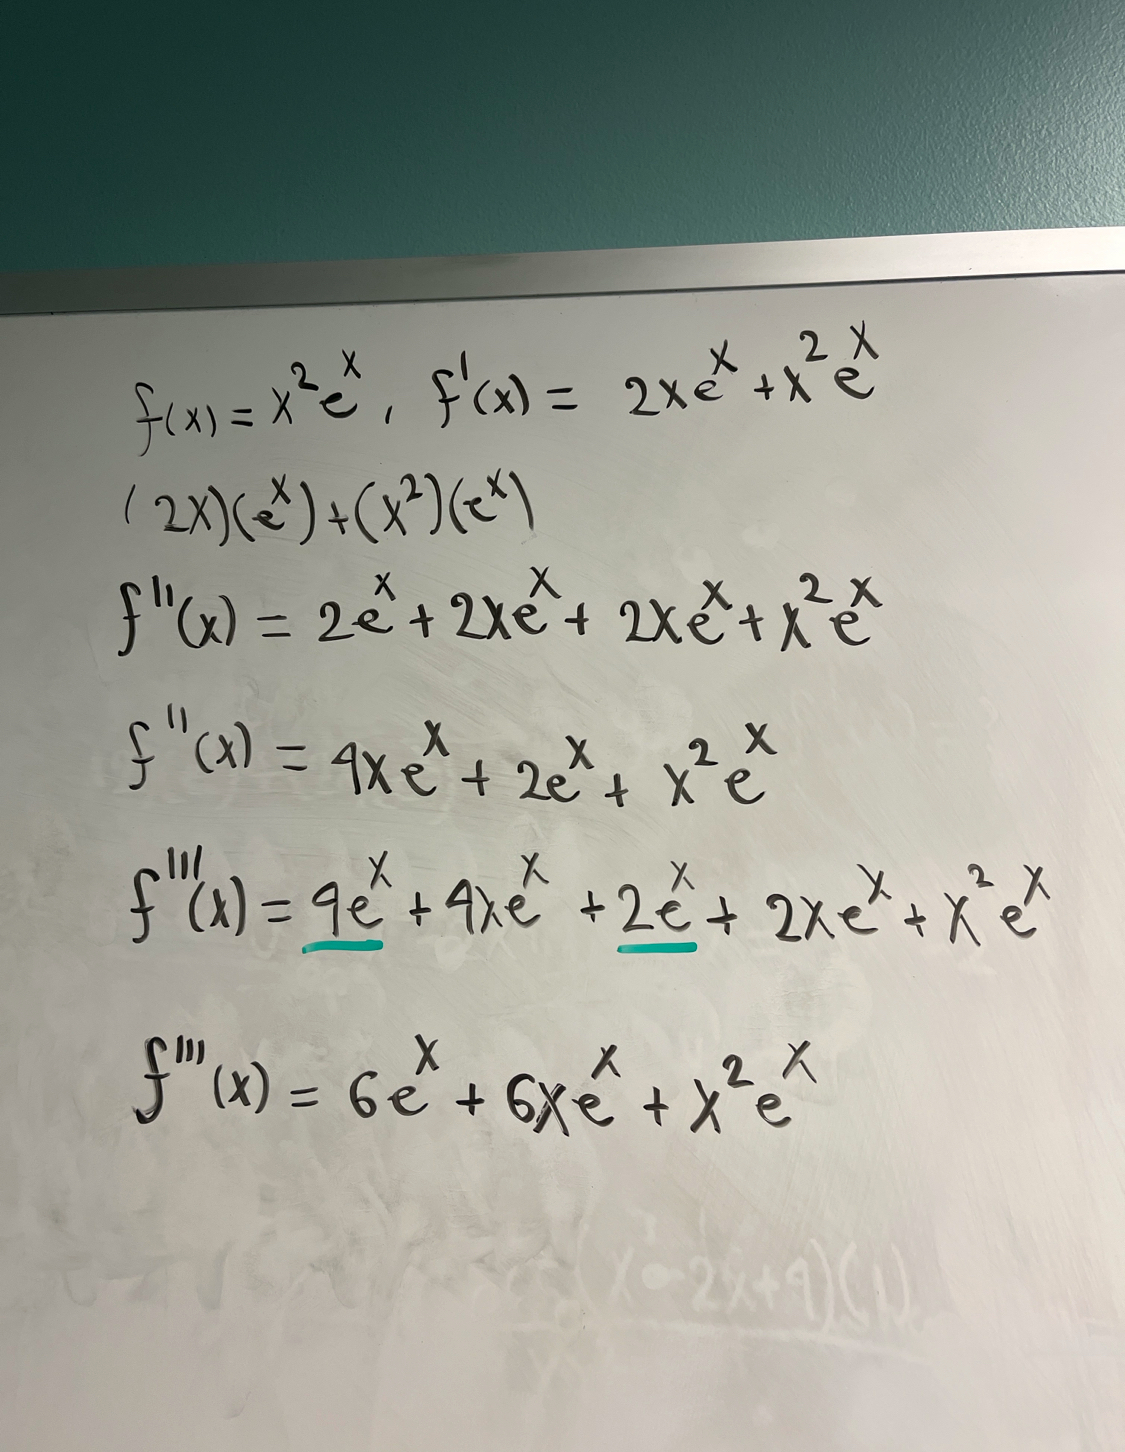 f(x) = x²eˣ, f'(x) = 2xeˣ + x²eˣ
(2x)(eˣ) + (x²)(eˣ)
f''(x) = 2eˣ + 2xeˣ + 2xeˣ + x²eˣ
f''(x) = 4xeˣ + 2eˣ + x²eˣ
f'''(x) = 4eˣ + 4xeˣ + 2eˣ + 2xeˣ + x²eˣ
f'''(x) = 6eˣ + 6xeˣ + x²eˣ